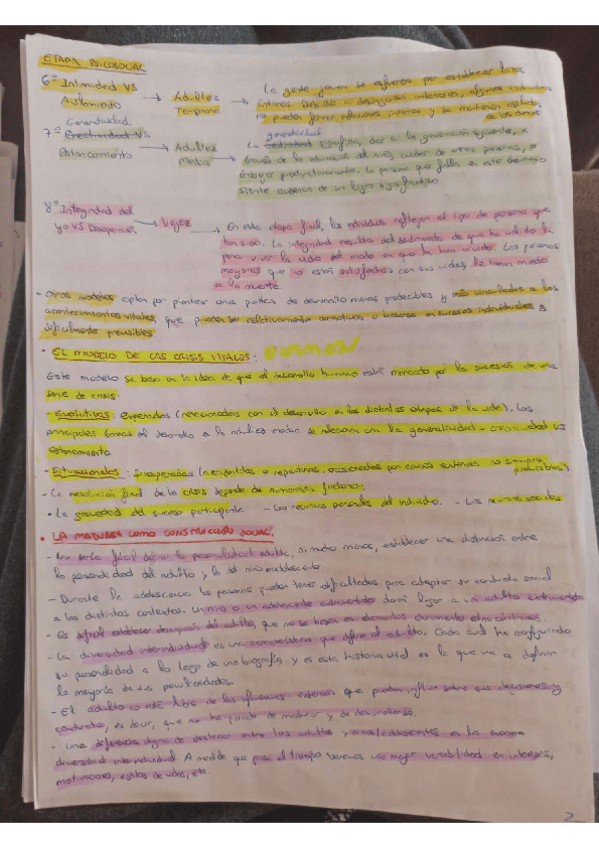 ETAPA PSICOSOCIAL
6º Intimidad VS Aislamiento → Adultez Temprana → La gente joven se esfuerza por establecer lazos
íntimos. Debido a desengaños anteriores, algunos individuos
no pueden formar relaciones íntimas y se mantienen aislados
de los demás
7º Generatividad Creatividad VS Estancamiento → Adultez Media → La generatividad creatividad significa, dar a la generación siguiente, a
través de la educación del niño, cuidar de otras personas, o
trabajar productivamente. La persona que falla en este dominio
siente ausencia de un logro significativo.
8º Integridad del yo VS Desesperación → Vejez → En esta etapa final, los individuos reflejan el tipo de persona que
han sido. La integridad resulta del sentimiento de que ha valido la
pena vivir la vida del modo en que la han vivido. Las personas
mayores que no están satisfechas con sus vidas, le tienen miedo
a la muerte.
- Otros modelos optan por plantear unas pautas de desarrollo menos predecibles y más vinculadas a los
acontecimientos vitales, que pueden ser relativamente normativos o basarse en sucesos individuales y
dificilmente previsibles.
• EL MODELO DE LAS CRISIS VITALES:
Este modelo se basa en la idea de que el desarrollo humano está marcado por la sucesión de una
serie de crisis:
- Evolutivas: Esperadas (relacionadas con el desarrollo en las distintas etapas de la vida). Las
principales tareas del desarrollo a la adultez media se relacionan con la generatividad - creatividad vs
estancamiento
- Situacionales: Inesperadas (repentinas, ocasionadas por causas externas, no siempre
predecibles)
• La resolución final de la crisis depende de numerosos factores:
• La gravedad del suceso participante - Los recursos personales del individuo. - Los recursos sociales
• LA MADUREZ COMO CONSTRUCCIÓN SOCIAL.
- No sería fácil definir la personalidad adulta, ni mucho menos, establecer una distinción entre
la personalidad del adulto y la del niño/adolescente
- Durante la adolescencia las personas pueden tener dificultades para adaptar su conducta social
a los distintos contextos. Un niño o un adolescente extravertido dará lugar a un adulto extravertido
- Es difícil establecer descripción del adulto, que no se basen en elementos claramente etnocéntricos.
- La diversidad interindividual es una característica que define al adulto. Cada cual ha configurado
su personalidad a lo largo de una biografía y es esta historia vital es la que va a definir
la mayoría de sus peculiaridades.
- El adulto no está libre de las influencias externas que puedan influir sobre sus decisiones y
conducta, es decir, que no ha parado de madurar y de desarrollarse.
- Una diferencia digna de destacar entre los adultos y niños/adolescentes es la enorme
diversidad interindividual. A medida que pasa el tiempo veremos una mayor variabilidad en intereses,
motivaciones, estilos de vidas, etc.
2